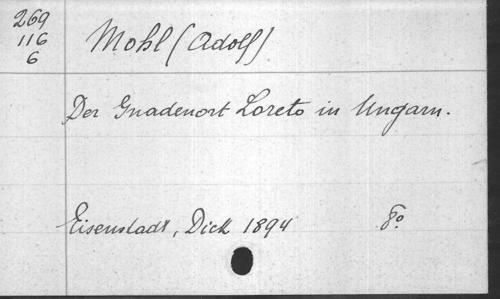 269
116
6
Mohl (Adolf)
Der Gnadenort Loreto in Ungarn.
Eisenstadt, Dick 1894 8º